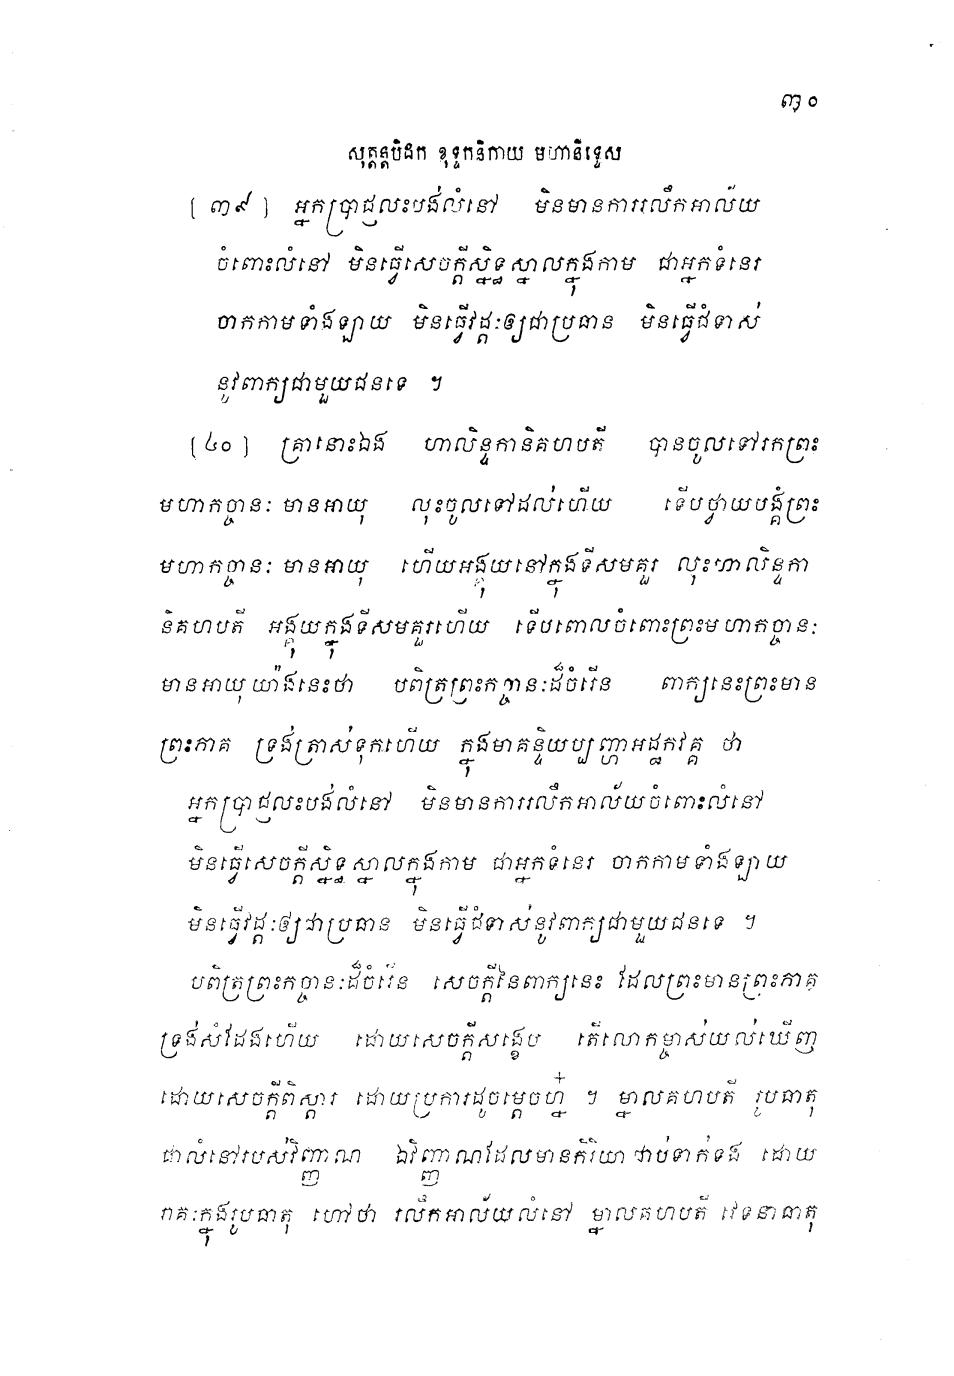 ៣០
សុត្តន្តបិដក ខុទ្ទកនិកាយ មហានិទ្ទេស
[ ៣៩ ] អ្នកប្រាជ្ញលះបង់លំនៅ មិនមានការរលឹកអាល័យ
ចំពោះលំនៅ មិនធ្វើសេចក្តីស្និទ្ធស្នាលក្នុងកាម ជាអ្នកទំនេរ
ចាកកាមទាំងឡាយ មិនធ្វើវដ្តៈឲ្យជាប្រធាន មិនធ្វើជំទាស់
នូវពាក្យជាមួយជនទេ ។
[ ៤០ ] គ្រានោះឯង ហាលិន្ទកានិគហបតី បានចូលទៅរកព្រះ
មហាកច្ចានៈ មានអាយុ លុះចូលទៅដល់ហើយ ទើបថ្វាយបង្គំព្រះ
មហាកច្ចានៈ មានអាយុ ហើយអង្គុយនៅក្នុងទីសមគួរ លុះហាលិន្ទកា
និគហបតី អង្គុយក្នុងទីសមគួរហើយ ទើបពោលចំពោះព្រះមហាកច្ចានៈ
មានអាយុយ៉ាងនេះថា បពិត្រព្រះកច្ចានៈដ៏ចំរើន ពាក្យនេះព្រះមាន
ព្រះភាគ ទ្រង់ត្រាស់ទុកហើយ ក្នុងមាគន្ទិយប្បញ្ហាអដ្ឋកវគ្គ ថា
អ្នកប្រាជ្ញលះបង់លំនៅ មិនមានការរលឹកអាល័យចំពោះលំនៅ
មិនធ្វើសេចក្តីស្និទ្ធស្នាលក្នុងកាម ជាអ្នកទំនេរ ចាកកាមទាំងឡាយ
មិនធ្វើវដ្តៈឲ្យជាប្រធាន មិនធ្វើជំទាស់នូវពាក្យជាមួយជនទេ ។
បពិត្រព្រះកច្ចានៈដ៏ចំរើន សេចក្តីនៃពាក្យនេះ ដែលព្រះមានព្រះភាគ
ទ្រង់សំដែងហើយ ដោយសេចក្តីសង្ខេប តើលោកម្ចាស់យល់ឃើញ
ដោយសេចក្តីពិស្តារ ដោយប្រការដូចម្តេចហ្ន៎ ។ ម្នាលគហបតី រូបធាតុ
ជាលំនៅរបស់វិញ្ញាណ ឯវិញ្ញាណដែលមានកិរិយាជាប់ទាក់ទង ដោយ
រាគៈក្នុងរូបធាតុ ហៅថា រលឹកអាល័យលំនៅ ម្នាលគហបតី វេទនាធាតុ